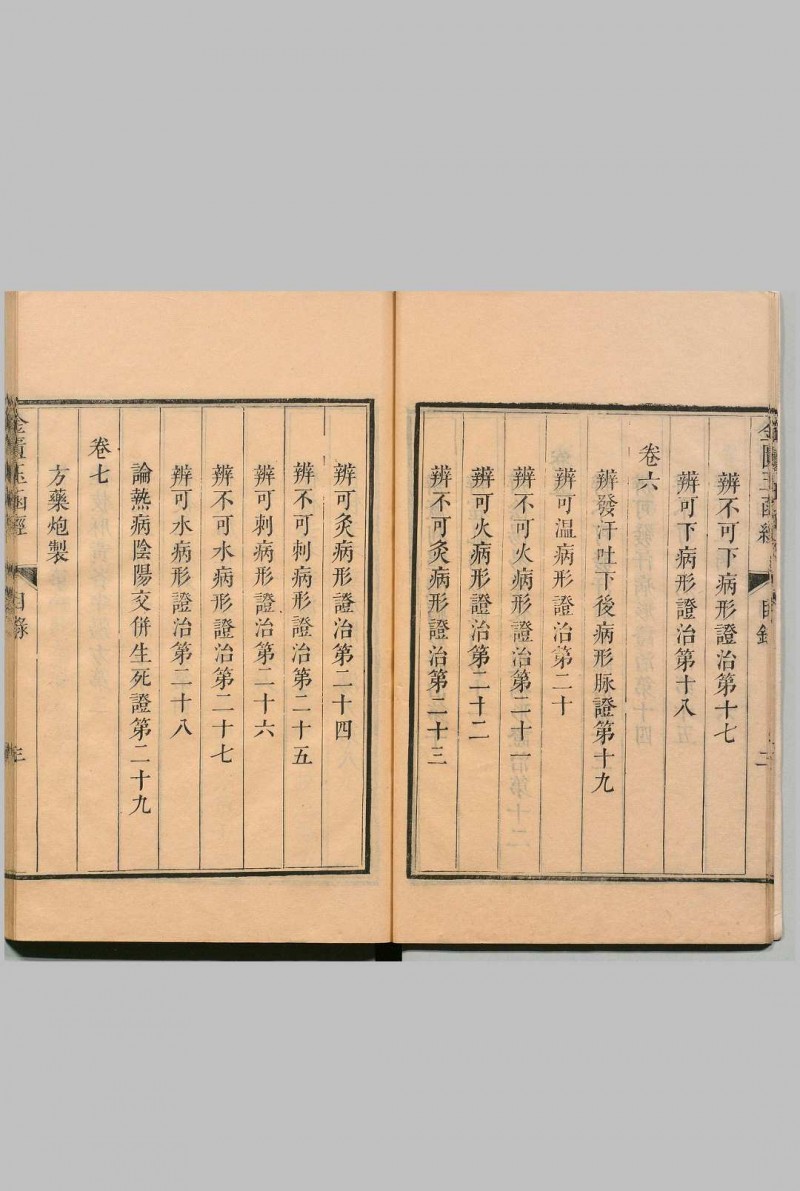 金匱玉函經 目錄 二
辨不可下病形證治第十七
辨可下病形證治第十八
卷六
辨發汗吐下後病形脉證第十九
辨可温病形證治第二十
辨不可火病形證治第二十一
辨可火病形證治第二十二
辨不可灸病形證治第二十三
辨可灸病形證治第二十四
辨不可刺病形證治第二十五
辨可刺病形證治第二十六
辨不可水病形證治第二十七
辨可水病形證治第二十八
論熱病陰陽交併生死證第二十九
卷七
方藥炮製
金匱玉函經 目錄 三